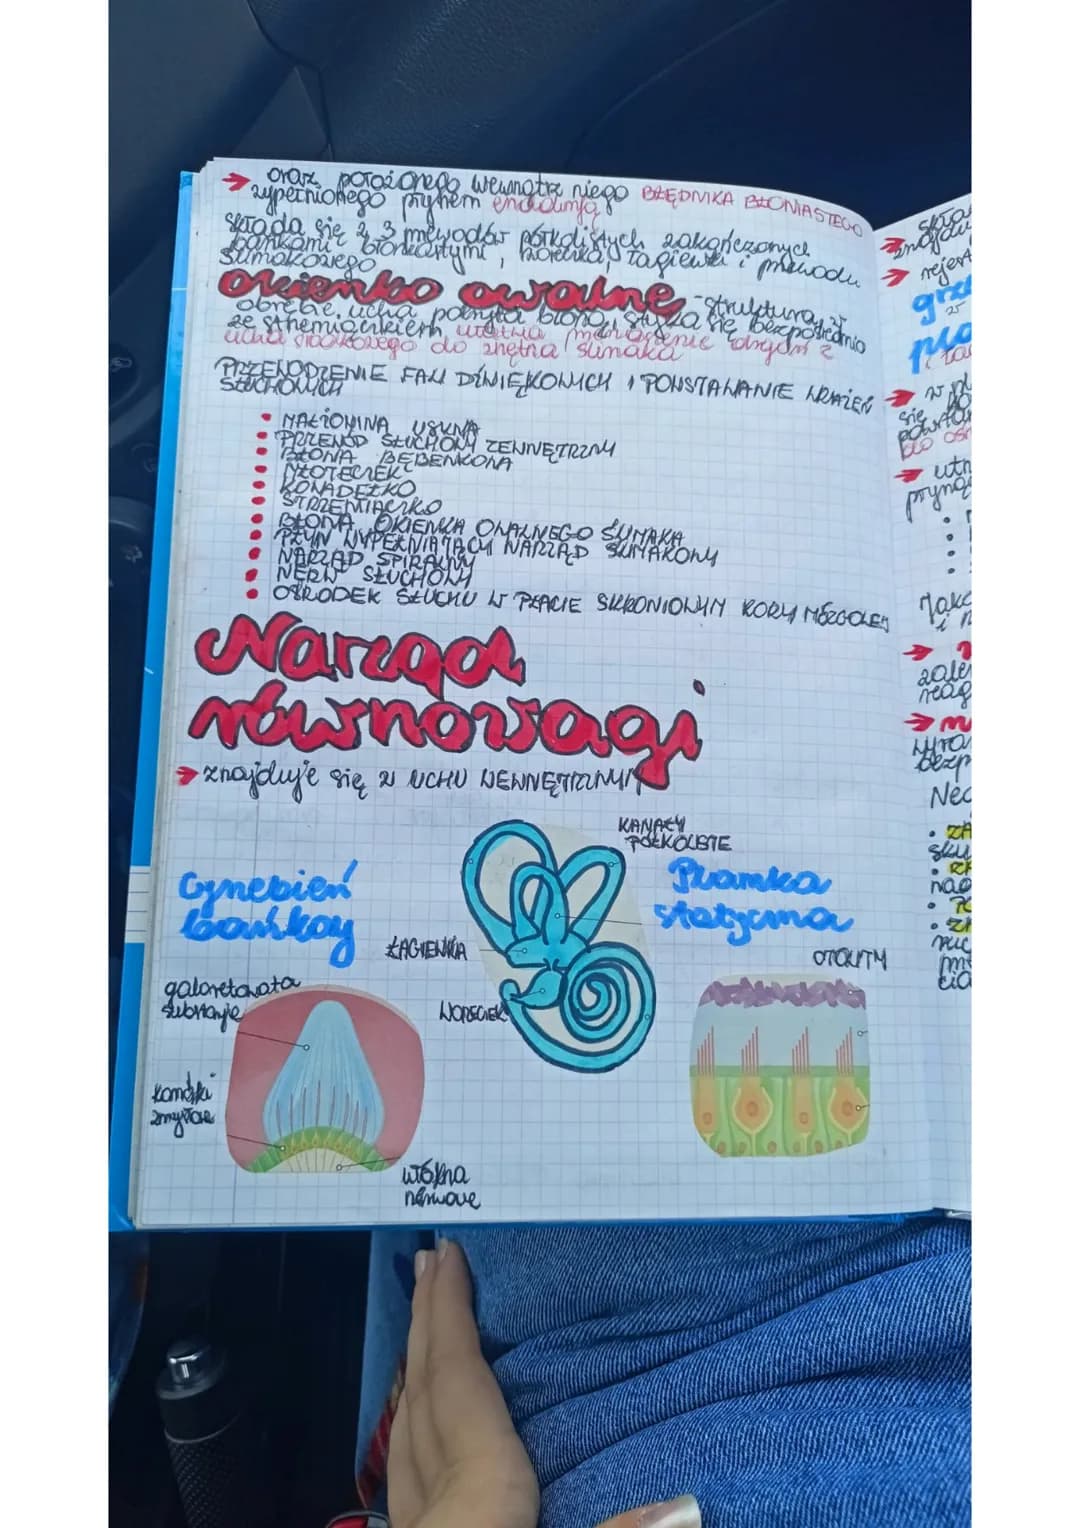 → oraz położonego wewnątrz niego BŁĘDNIKA BŁONIASTEGO
wypełnionego płynem endolimfą
składa się z 3 przewodów półkolistych zakończonych
bańkami błoniastymi, woreczka, łagiewki i przewodu
ślimakowego
okienko owalne - struktura w
obrębie ucha pokryta błoną, styka się bezpośrednio
ze strzemiączkiem, ułatwia przenoszenie drgań z
ucha środkowego do wnętrza ślimaka
PRZEWODZENIE FALI DŹWIĘKOWYCH I POWSTAWANIE WRAŻEŃ
SŁUCHOWYCH
• MAŁŻOWINA USZNA
• PRZEWÓD SŁUCHOWY ZEWNĘTRZNY
• BŁONA BĘBENKOWA
• MŁOTECZEK
• KOWADEŁKO
• STRZEMIĄCZKO
• BŁONA OKIENKA OWALNEGO ŚLIMAKA
• PŁYN WYPEŁNIAJĄCY NARZĄD ŚLIMAKOWY
• NARZĄD SPIRALNY
• NERW SŁUCHOWY
• OŚRODEK SŁUCHU W PŁACIE SKRONIOWYM KORY MÓZGOWEJ
Narząd
równowagi
→ znajduje się w UCHU WEWNĘTRZNYM
KANAŁY
PÓŁKOLISTE
Grzebień
bańkowy
Plamka
statyczna
ŁAGIEWKA
OTOLITY
galaretowata
substancja
WORECZEK
komórki
zmysłowe
włókna
nerwowe